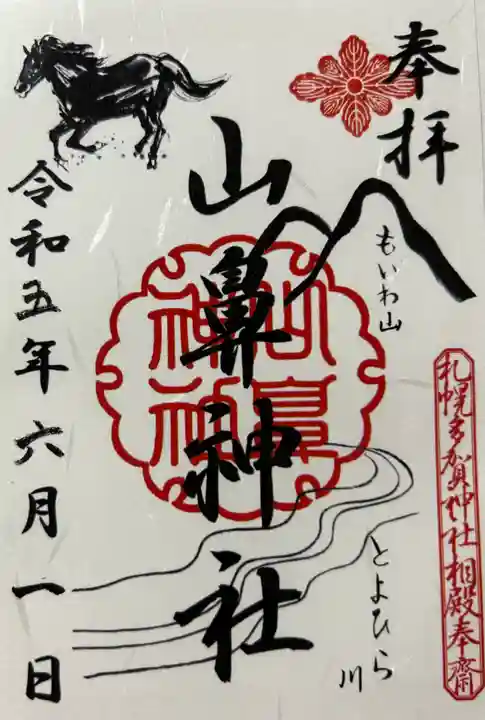 奉拝
もいわ山
札幌多賀神社相殿奉齋
とよひら川
山鼻神社
山鼻神社
令和五年六月一日